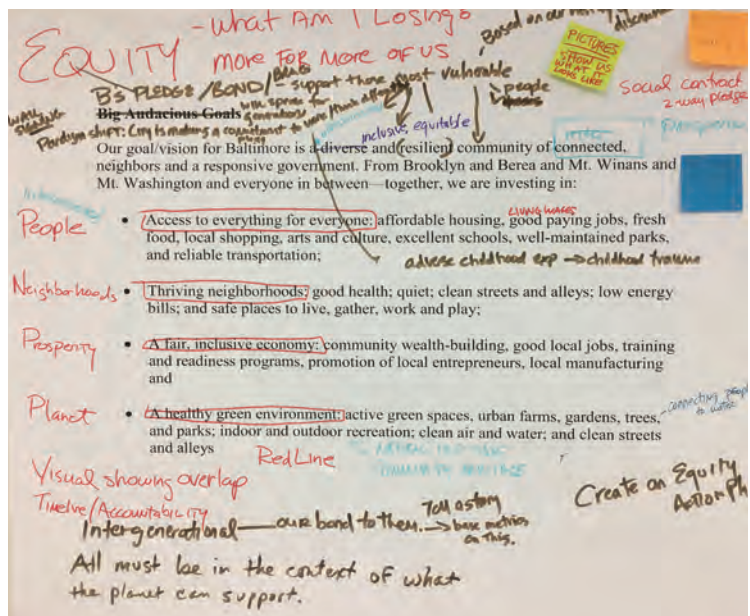 EQUITY
- What Am I Losing?
more FOR MORE OF US
Based on our history of
PICTURES
SHOW US
WHAT IT
LOOKS LIKE
B's PLEDGE / BOND /
- support those most vulnerable
people
Social contract
2 way pledge
Big Audacious Goals
generations
Paradigm shift: City is making a commitment to
inclusive, equitable
Our goal/vision for Baltimore is a diverse and (resilient) community of connected,
neighbors and a responsive government. From Brooklyn and Berea and Mt. Winans and
Mt. Washington and everyone in between—together, we are investing in:
People
LIVING WAGES
• Access to everything for everyone: affordable housing, good paying jobs, fresh
food, local shopping, arts and culture, excellent schools, well-maintained parks,
and reliable transportation;
adverse childhood exp → childhood trauma
Neighborhoods
• Thriving neighborhoods: good health; quiet; clean streets and alleys; low energy
bills; and safe places to live, gather, work and play;
Prosperity
• A fair, inclusive economy: community wealth-building, good local jobs, training
and readiness programs, promotion of local entrepreneurs, local manufacturing
and
Planet
• A healthy green environment: active green spaces, urban farms, gardens, trees,
and parks; indoor and outdoor recreation; clean air and water; and clean streets
and alleys
- connecting people
to water
RedLine
Visual showing overlap
Timeline/Accountability
Intergenerational — our bond to them. → Tell a story
base metrics
on this.
Create an Equity
Action
All must be in the context of what
the planet can support.